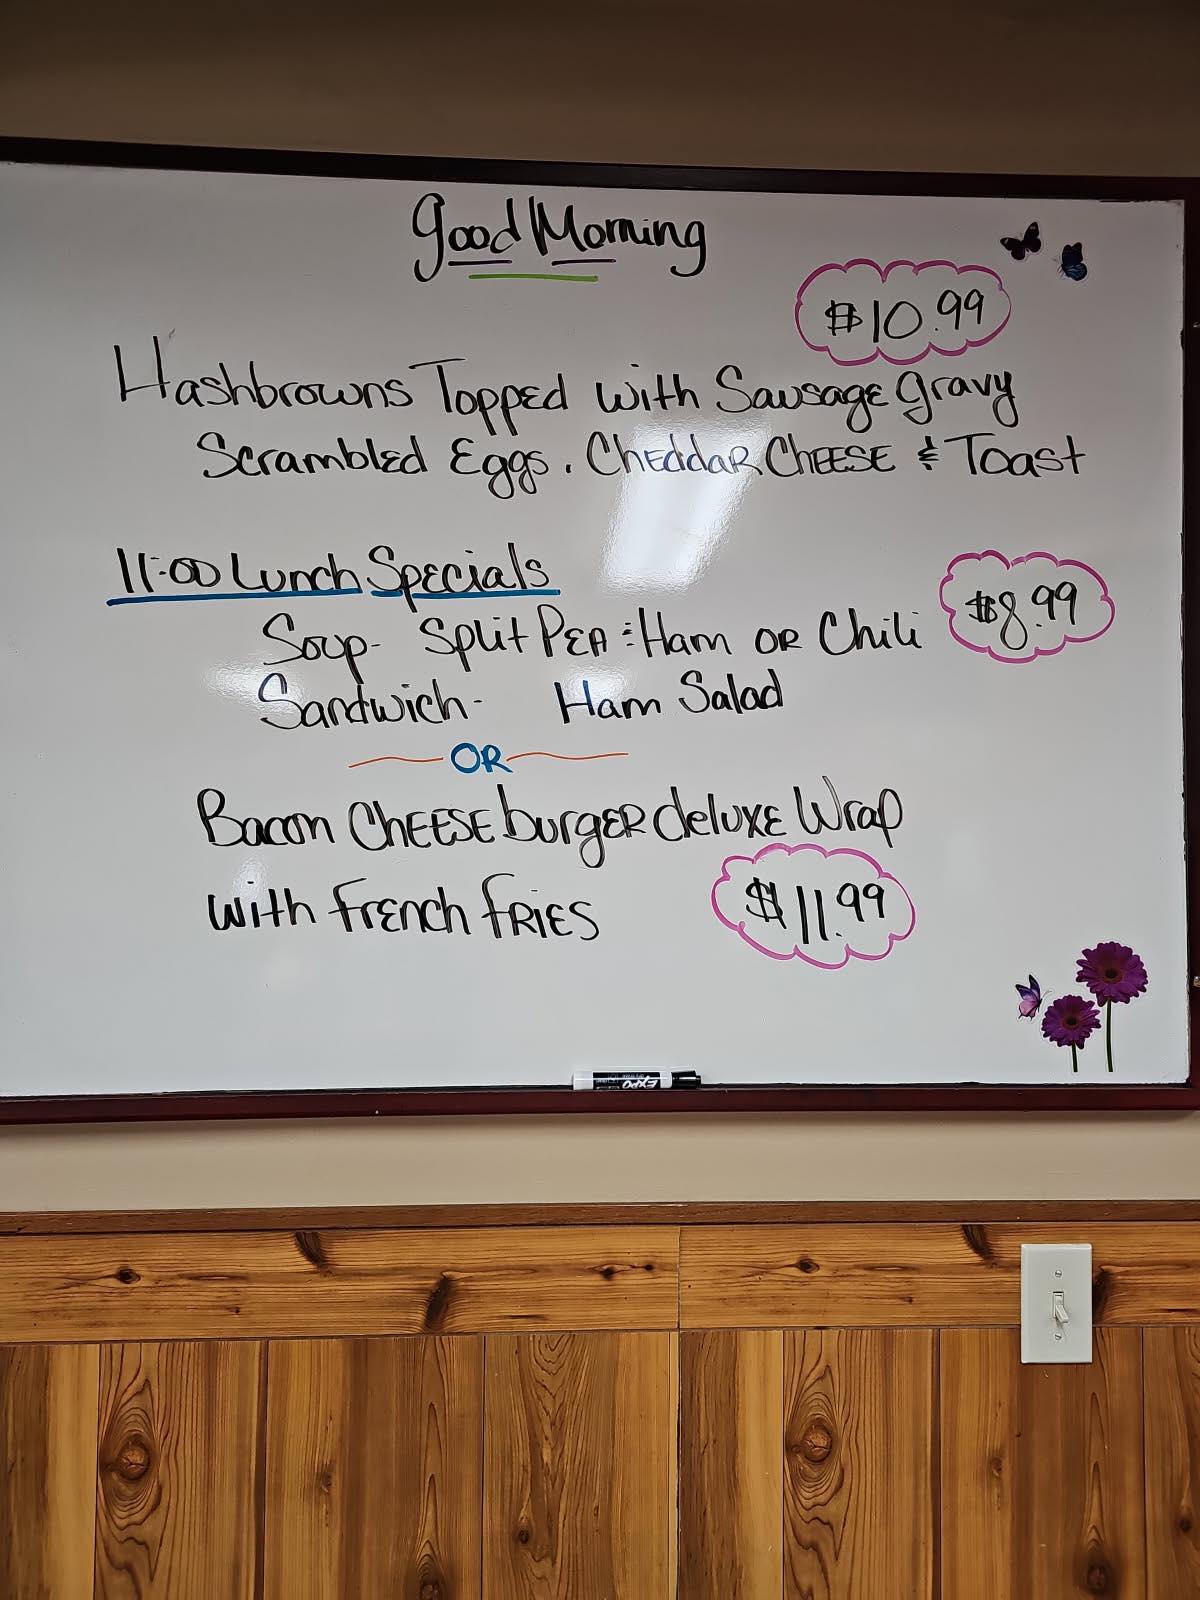 Good Morning
$10.99
Hashbrowns Topped with Sausage Gravy
Scrambled Eggs, Cheddar Cheese & Toast
11:00 Lunch Specials
$8.99
Soup- Split Pea & Ham or Chili
Sandwich- Ham Salad
OR
Bacon Cheeseburger deluxe Wrap
with French Fries
$11.99
EXPO